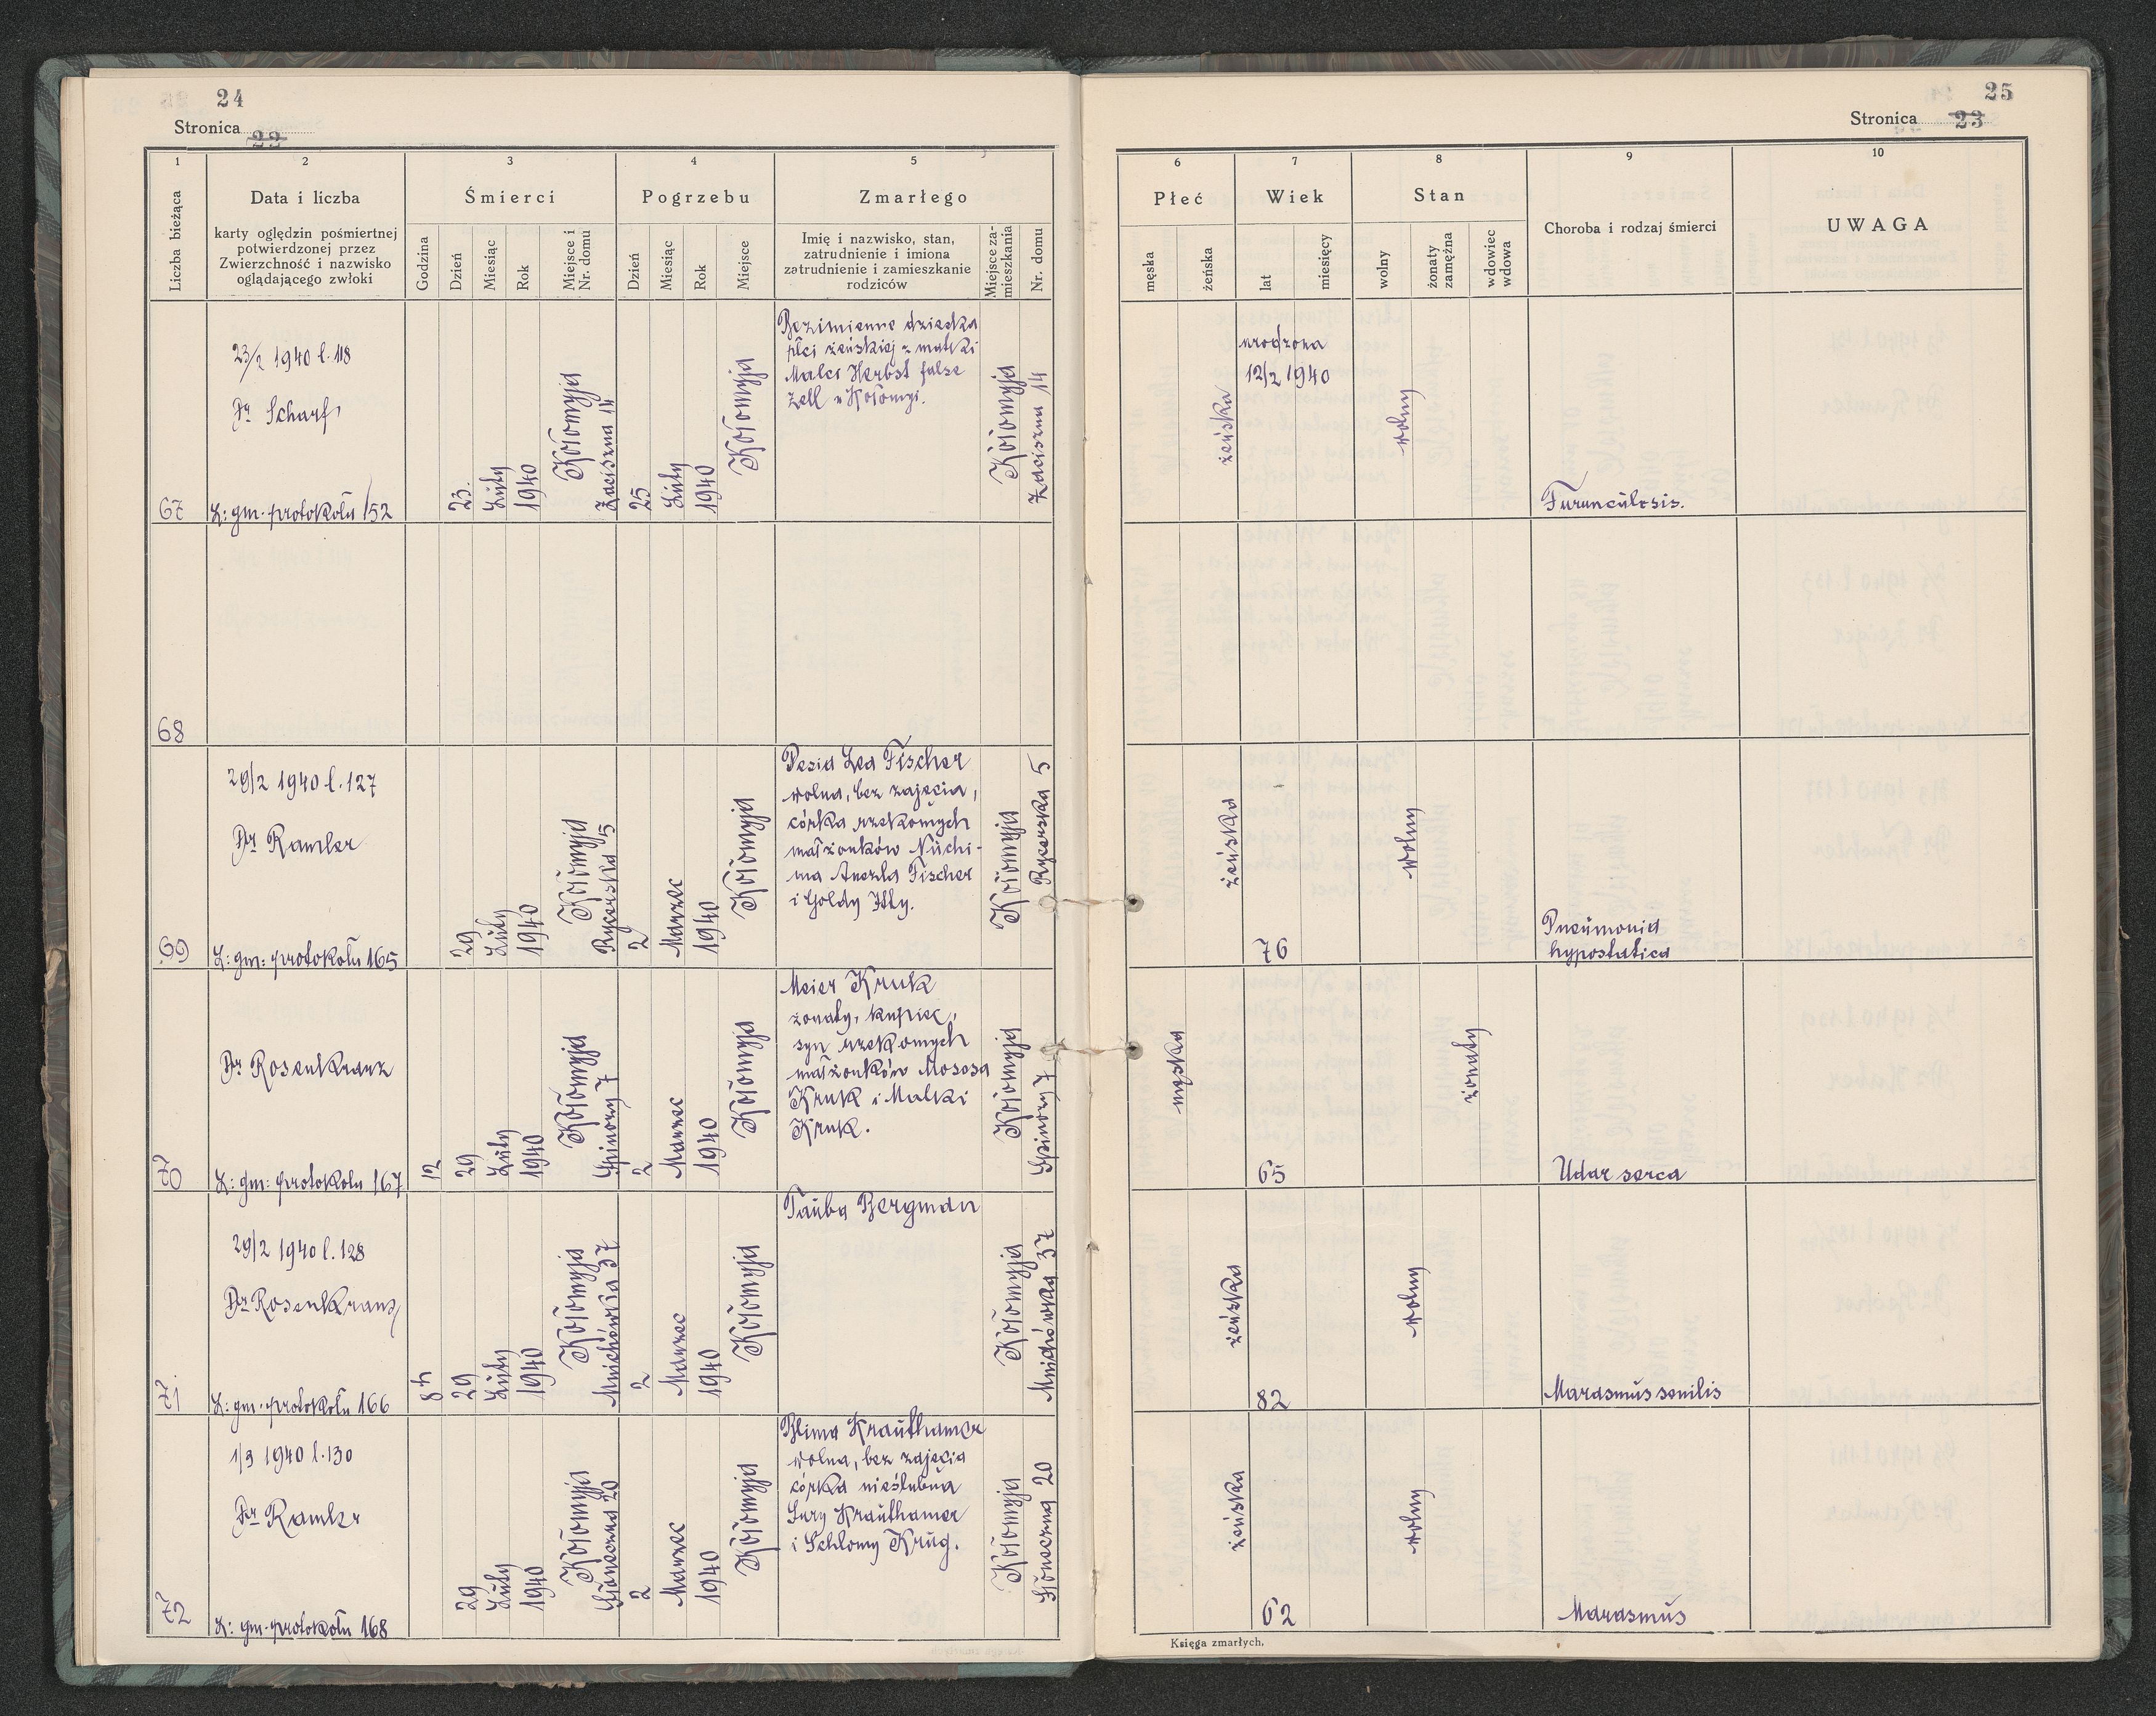 24
Stronica 22
1
2
3
4
5
Liczba bieżąca
Data i liczba
karty oględzin pośmiertnej
potwierdzonej przez
Zwierzchność i nazwisko
oglądającego zwłoki
Śmierci
Godzina
Dzień
Miesiąc
Rok
Miejsce i
Nr. domu
Pogrzebu
Dzień
Miesiąc
Rok
Miejsce
Zmarłego
Imię i nazwisko, stan,
zatrudnienie i imiona
zatrudnienie i zamieszkanie
rodziców
Miejsce za-
mieszkania
Nr. domu
67
23/2 1940 l. 118
Dr Scharf
L: gm. protokołu 152
23.
Luty
1940
Kołomyja
Zaciszna 14
25
Luty
1940
Kołomyja
Bezimienne dziecko
płci żeńskiej z matki
Malci Herbst false
Zell w Kołomyi.
Kołomyja
Zaciszna 14
68
69
29/2 1940 l. 127
Dr Ramler
L: gm: protokołu 165
29
Luty
1940
Kołomyja
Rycerska 5
2
Marzec
1940
Kołomyja
Pesia Lea Fischer
wolna, bez zajęcia,
córka rzekomych
małżonków Nuchi-
ma Anczla Fischer
i Goldy Itty.
Kołomyja
Rycerska 5
70
Dr Rosenkranz
L: gm: protokołu 167
12
29
Luty
1940
Kołomyja
7
2
Marzec
1940
Kołomyja
Meier Kruk
żonaty, kupiec,
syn rzekomych
małżonków Mosesa
Kruk i Malki
Kruk.
Kołomyja
7
71
29/2 1940 l. 128
Dr Rosenkranz
L: gm. protokołu 166
8h
29
Luty
1940
Kołomyja
Mnichówka 37
2
Marzec
1940
Kołomyja
Tauba Bergman
Kołomyja
Mnichówka 37
72
1/3 1940 l. 130
Dr Ramler
L: gm. protokołu 168
29
Luty
1940
Kołomyja
Słoneczna 20
2
Marzec
1940
Kołomyja
Blima Krauthamer
wolna, bez zajęcia
córka nieślubna
Sury Krauthamer
i Schlomy Krug.
Kołomyja
Słoneczna 20
25
Stronica 23
6
7
8
9
10
Płeć
męska
żeńska
Wiek
lat
miesięcy
Stan
wolny
żonaty
zamężna
wdowiec
wdowa
Choroba i rodzaj śmierci
UWAGA
żeńska
urodzona
12/2 1940
wolny
Furunculosis.
żeńska
76
wolny
Pneumonia
hypostatica
męska
65
żonaty
Udar serca
żeńska
82
wolny
Marasmus senilis
żeńska
62
wolny
Marasmus
Księga zmarłych.